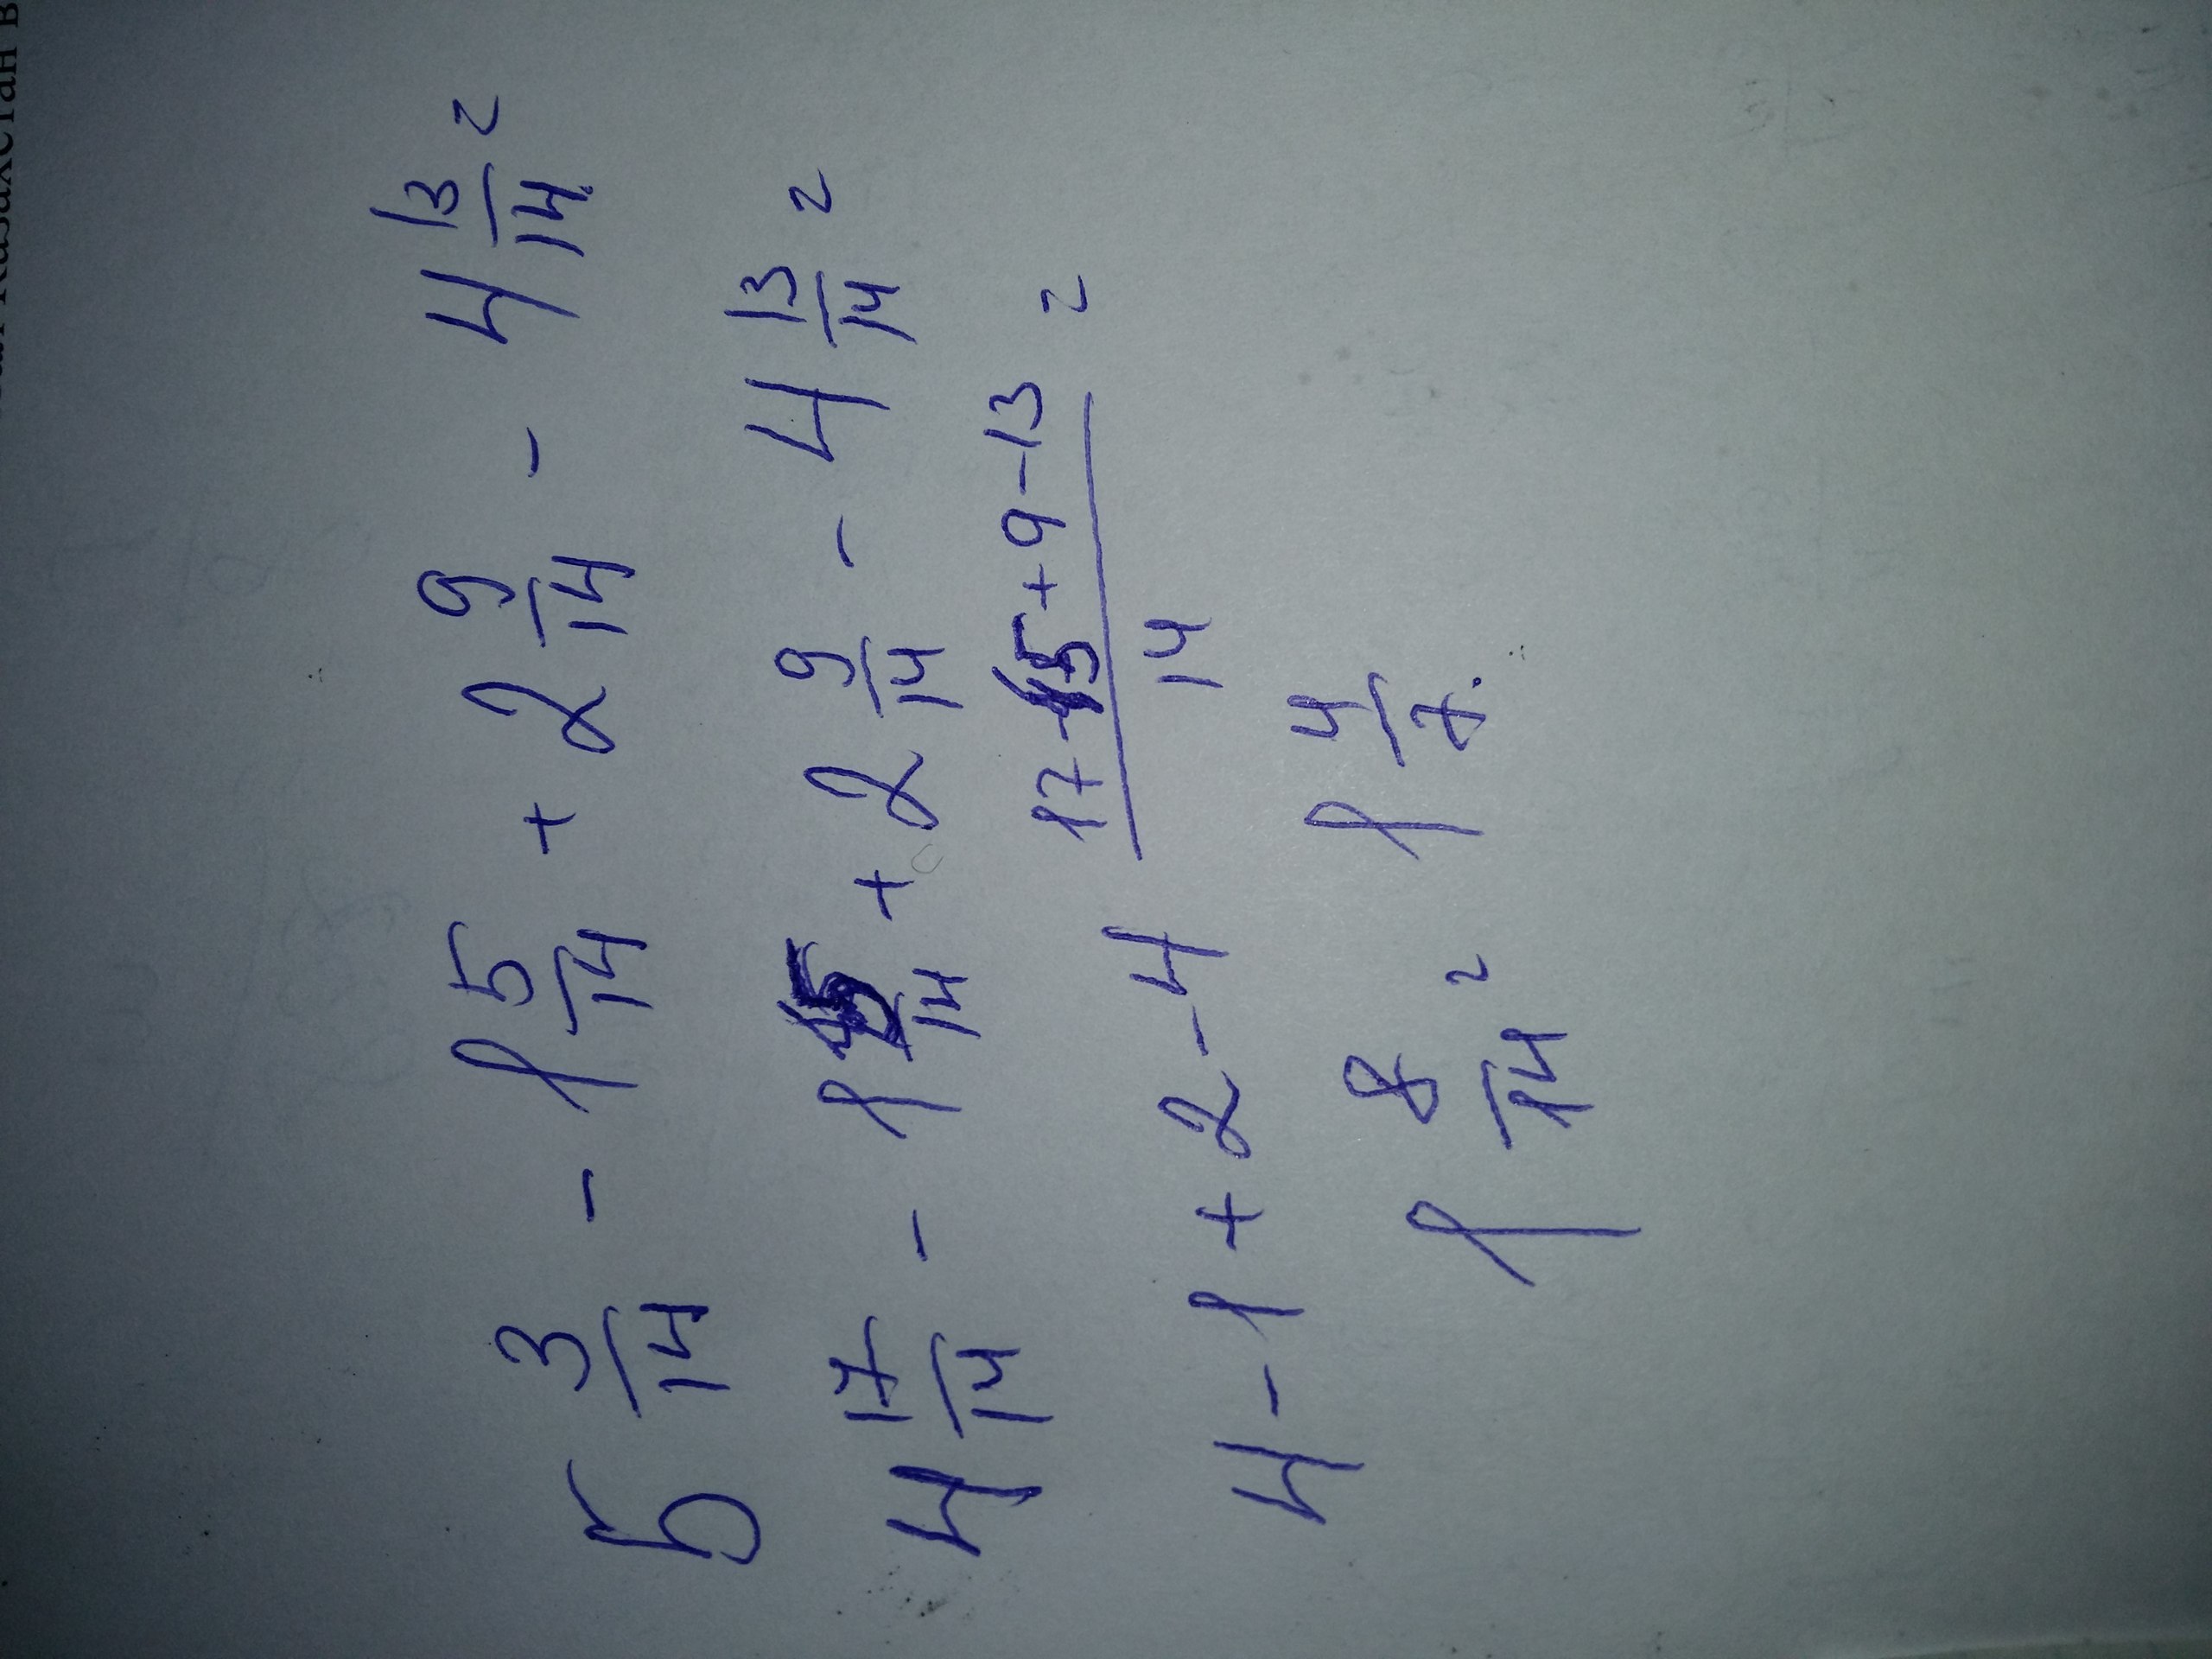 Казахстан в
5 3/14 - 1 5/14 + 2 9/14 - 4 13/14 =
4 17/14 - 1 5/14 + 2 9/14 - 4 13/14 =
4 - 1 + 2 - 4 17-5+9-13/14 =
1 8/14 = 1 4/7.